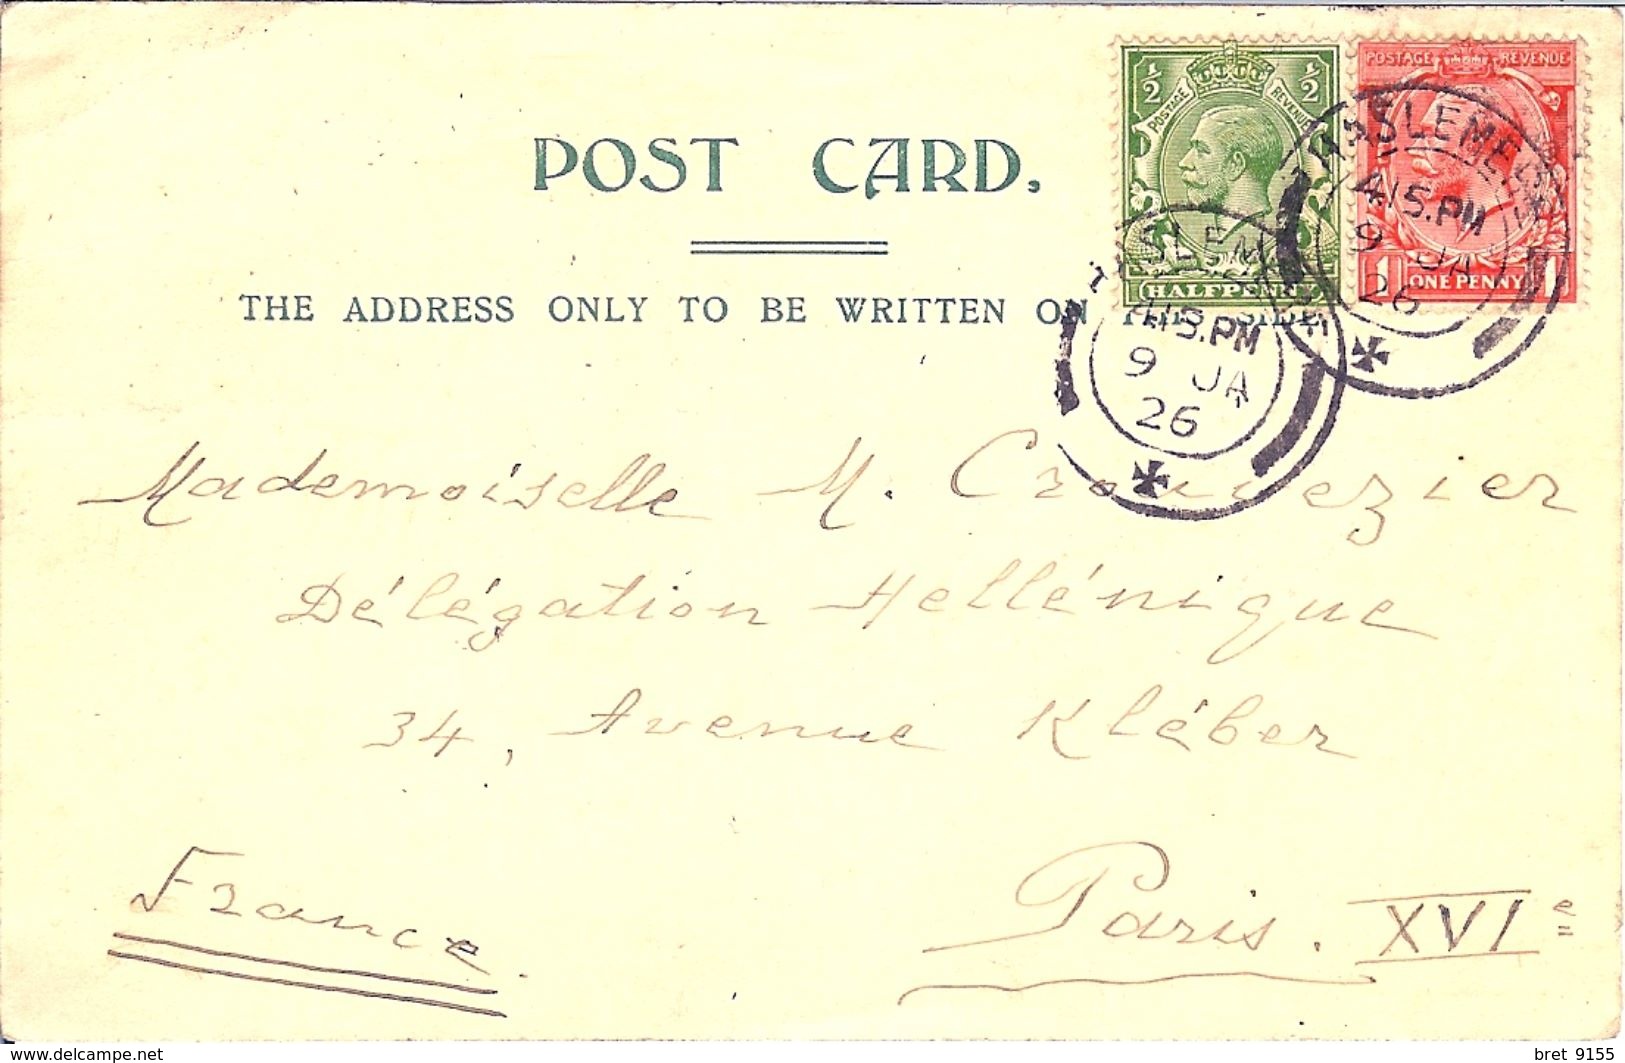 POST CARD.
THE ADDRESS ONLY TO BE WRITTEN ON THIS SIDE
½ ½
POSTAGE REVENUE
HALFPENNY
POSTAGE REVENUE
1 ONE PENNY 1
HASLEMERE
4 15.PM
9 JA
26
HASLEMERE
4 15.PM
9 JA
26
Mademoiselle M. Crouvezier
Délégation Hellénique
34, Avenue Kléber
Paris. XVIe
France.
www.delcampe.net
bret 9155